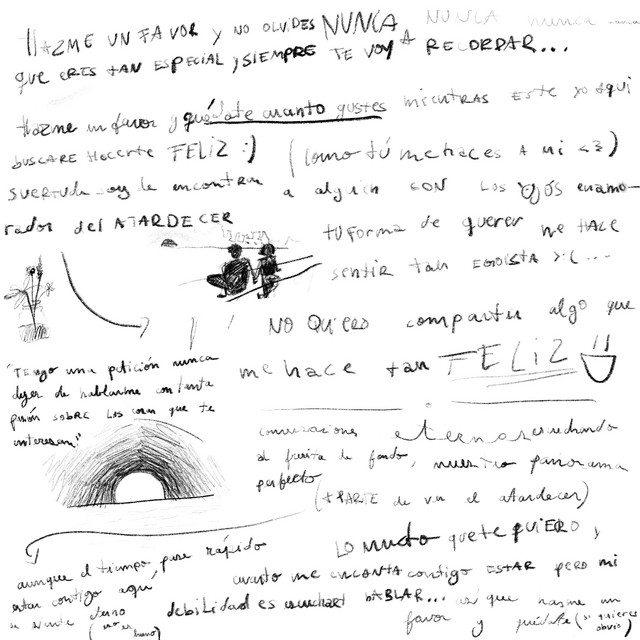 HAZME UN FAVOR y NO OLVIDES NUNCA NUNCA nunca nunca
que eres tan especial y siempre te voy A RECORDAR...
Hazme un favor y quédate cuanto gustes mientras este yo aqui
buscare Hacerte FELIZ :) (como tú me haces A mi <3)
suertuda soy de encontrar a alguien con los ojos enamo-
rados del ATARDECER
tu forma de querer me HACE
sentir tan EGOISTA >:(...
NO QUIERO compartir algo que
me hace tan FELIZ
"TEngo una petición nunca
dejes de hablarme con tanta
pasión sobre las cosas que te
interesan"
conversaciones eternas escuchando
al de fondo, nuestro panorama
perfecto
(APARTE de ver el atardecer)
aunque el tiempo pase rápido
estar contigo aqui
se siente eterno
LO mucho que te quiero y
cuanto me ENCANTA contigo ESTAR pero mi
debilidad es escucharte HABLAR... asi que hazme un
favor y quédate (si quieres
obvio)